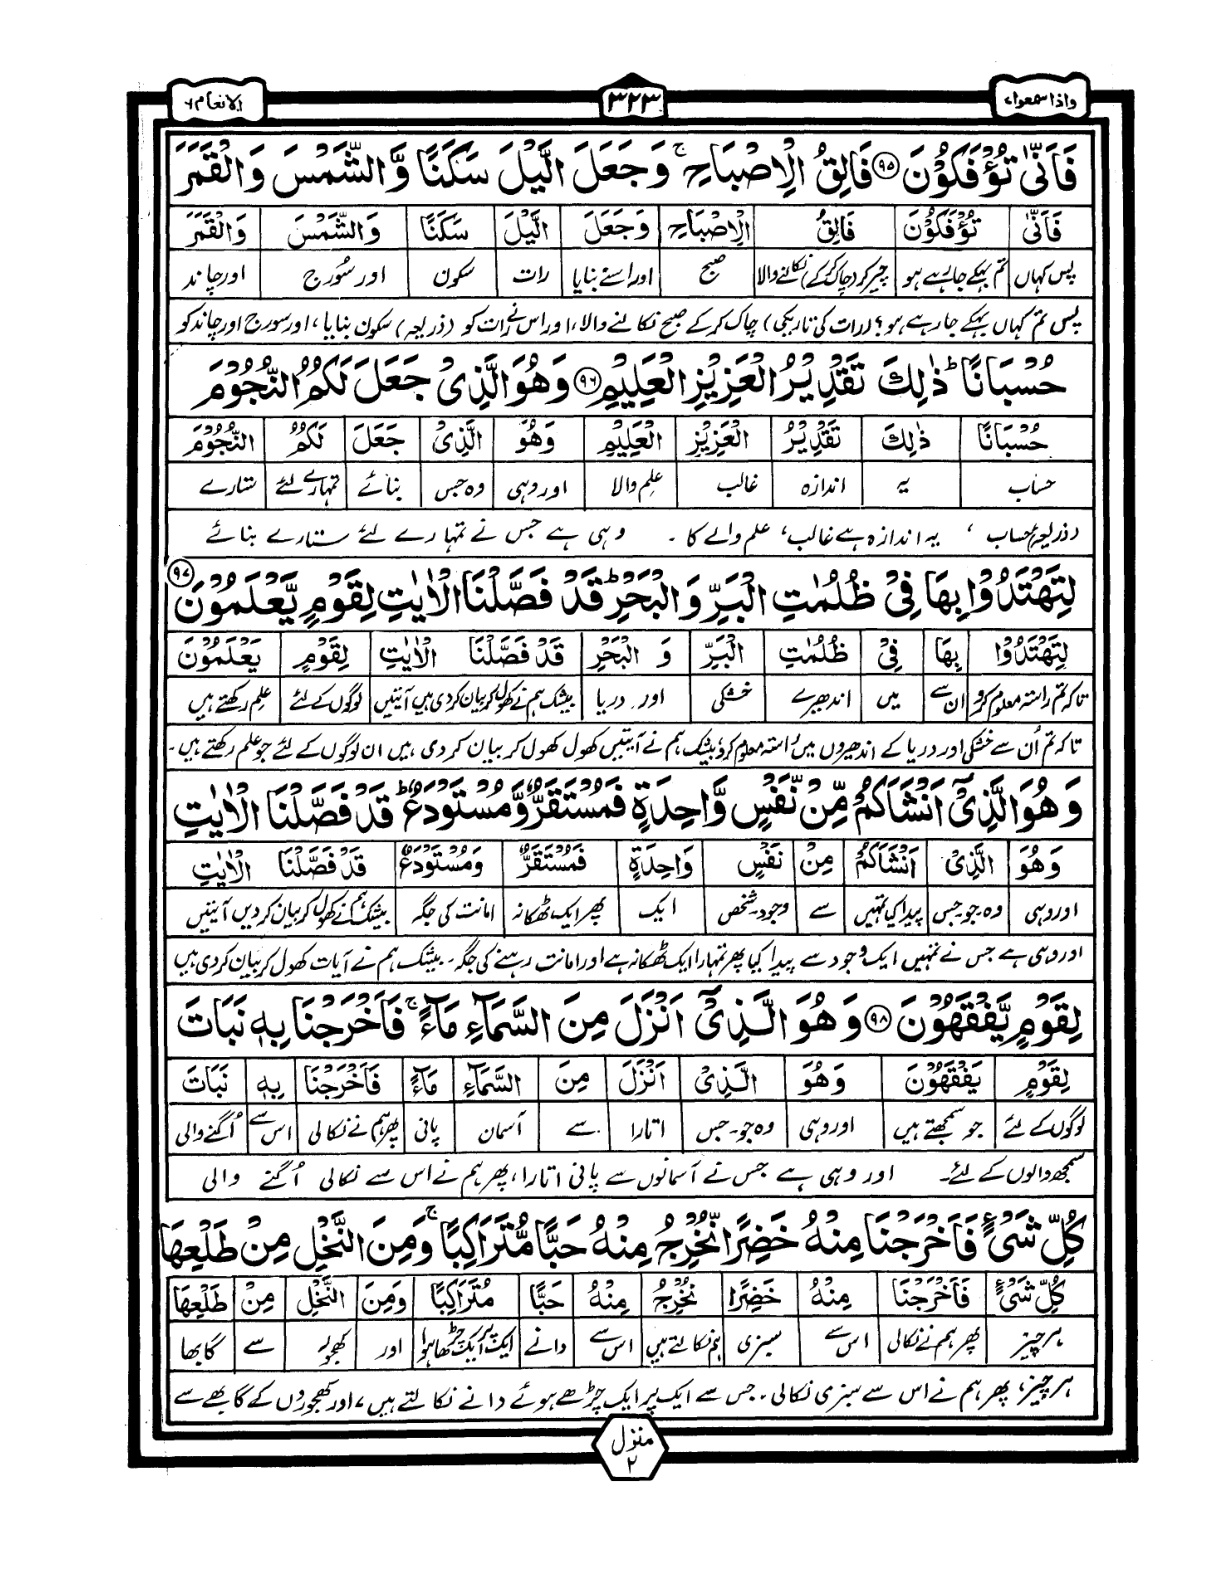 واذا سمعوا ٧
٣٢٣
الانعام ٦
فَاَنّٰى تُؤْفَكُوْنَ ٩٥ فَالِقُ الْاِصْبَاحِ ۚ وَجَعَلَ الَّيْلَ سَكَنًا وَّالشَّمْسَ وَالْقَمَرَ
فَاَنّٰى تُؤْفَكُوْنَ فَالِقُ الْاِصْبَاحِ وَجَعَلَ الَّيْلَ سَكَنًا وَالشَّمْسَ وَالْقَمَرَ
پس کہاں تم بہکے جارہے ہو چیر کر (چاک کرکے) نکالنے والا صبح اور اسنے بنایا رات سکون اور سورج اور چاند
پس تم کہاں بہکے جا رہے ہو؟ (رات کی تاریکی) چاک کرکے صبح نکالنے والا، اور اس نے رات کو (ذریعہ) سکون بنایا، اور سورج اور چاند کو
حُسْبَانًا ؕ ذٰلِكَ تَقْدِيْرُ الْعَزِيْزِ الْعَلِيْمِ ٩٦ وَهُوَ الَّذِىْ جَعَلَ لَكُمُ النُّجُوْمَ
حُسْبَانًا ذٰلِكَ تَقْدِيْرُ الْعَزِيْزِ الْعَلِيْمِ وَهُوَ الَّذِىْ جَعَلَ لَكُمُ النُّجُوْمَ
حساب یہ اندازہ غالب علم والا اور وہی وہ جس بنائے تمہارے لئے ستارے
(ذریعۂ) حساب ، یہ اندازہ ہے غالب، علم والے کا ۔ وہی ہے جس نے تمہارے لئے ستارے بنائے
لِتَهْتَدُوْا بِهَا فِىْ ظُلُمٰتِ الْبَرِّ وَ الْبَحْرِ ؕ قَدْ فَصَّلْنَا الْاٰيٰتِ لِقَوْمٍ يَّعْلَمُوْنَ ٩٧
لِتَهْتَدُوْا بِهَا فِىْ ظُلُمٰتِ الْبَرِّ وَ الْبَحْرِ قَدْ فَصَّلْنَا الْاٰيٰتِ لِقَوْمٍ يَعْلَمُوْنَ
تاکہ تم راستہ معلوم کرو ان سے میں اندھیرے خشکی اور دریا بیشک ہم نے کھول کر بیان کردی ہیں آیتیں لوگوں کے لئے علم رکھتے ہیں
تاکہ تم اُن سے خشکی اور دریا کے اندھیروں میں راستہ معلوم کرو، بیشک ہم نے آیتیں کھول کھول کر بیان کر دی ہیں ان لوگوں کے لئے جو علم رکھتے ہیں۔
وَهُوَ الَّذِىْۤ اَنْشَاَكُمْ مِّنْ نَّفْسٍ وَّاحِدَةٍ فَمُسْتَقَرٌّ وَّمُسْتَوْدَعٌ ؕ قَدْ فَصَّلْنَا الْاٰيٰتِ
وَهُوَ الَّذِىْ اَنْشَاَكُمْ مِنْ نَفْسٍ وَاحِدَةٍ فَمُسْتَقَرٌّ وَمُسْتَوْدَعٌ قَدْ فَصَّلْنَا الْاٰيٰتِ
اور وہی وہ جو جس پیدا کیا تمہیں سے وجود۔شخص ایک پھر ایک ٹھکانہ امانت کی جگہ بیشک ہم نے کھول کر بیان کردیں آیتیں
اور وہی ہے جس نے تمہیں ایک وجود سے پیدا کیا پھر تمہارا ایک ٹھکانہ ہے اور امانت رہنے کی جگہ۔ بیشک ہم نے آیات کھول کر بیان کر دی ہیں
لِقَوْمٍ يَّفْقَهُوْنَ ٩٨ وَهُوَ الَّذِىْۤ اَنْزَلَ مِنَ السَّمَآءِ مَآءً ۚ فَاَخْرَجْنَا بِهٖ نَبَاتَ
لِقَوْمٍ يَفْقَهُوْنَ وَهُوَ الَّذِىْ اَنْزَلَ مِنَ السَّمَآءِ مَآءً فَاَخْرَجْنَا بِهٖ نَبَاتَ
لوگوں کے لئے جو سمجھتے ہیں اور وہی وہ جو۔جس اتارا سے آسمان پانی پھر ہم نے نکالی اس سے اُگنے والی
سمجھ والوں کے لئے۔ اور وہی ہے جس نے آسمانوں سے پانی اتارا، پھر ہم نے اس سے نکالی اُگنے والی
كُلِّ شَىْءٍ فَاَخْرَجْنَا مِنْهُ خَضِرًا نُّخْرِجُ مِنْهُ حَبًّا مُّتَرَاكِبًا ۚ وَمِنَ النَّخْلِ مِنْ طَلْعِهَا
كُلِّ شَىْءٍ فَاَخْرَجْنَا مِنْهُ خَضِرًا نُخْرِجُ مِنْهُ حَبًّا مُتَرَاكِبًا وَمِنَ النَّخْلِ مِنْ طَلْعِهَا
ہر چیز پھر ہم نے نکالی اس سے سبزی ہم نکالتے ہیں اس سے دانے ایک پر ایک چڑھا ہوا اور کھجور سے گابھا
ہر چیز، پھر ہم نے اس سے سبزی نکالی۔ جس سے ایک پر ایک چڑھے ہوئے دانے نکالتے ہیں، اور کھجوروں کے گابھے سے
منزل ٢